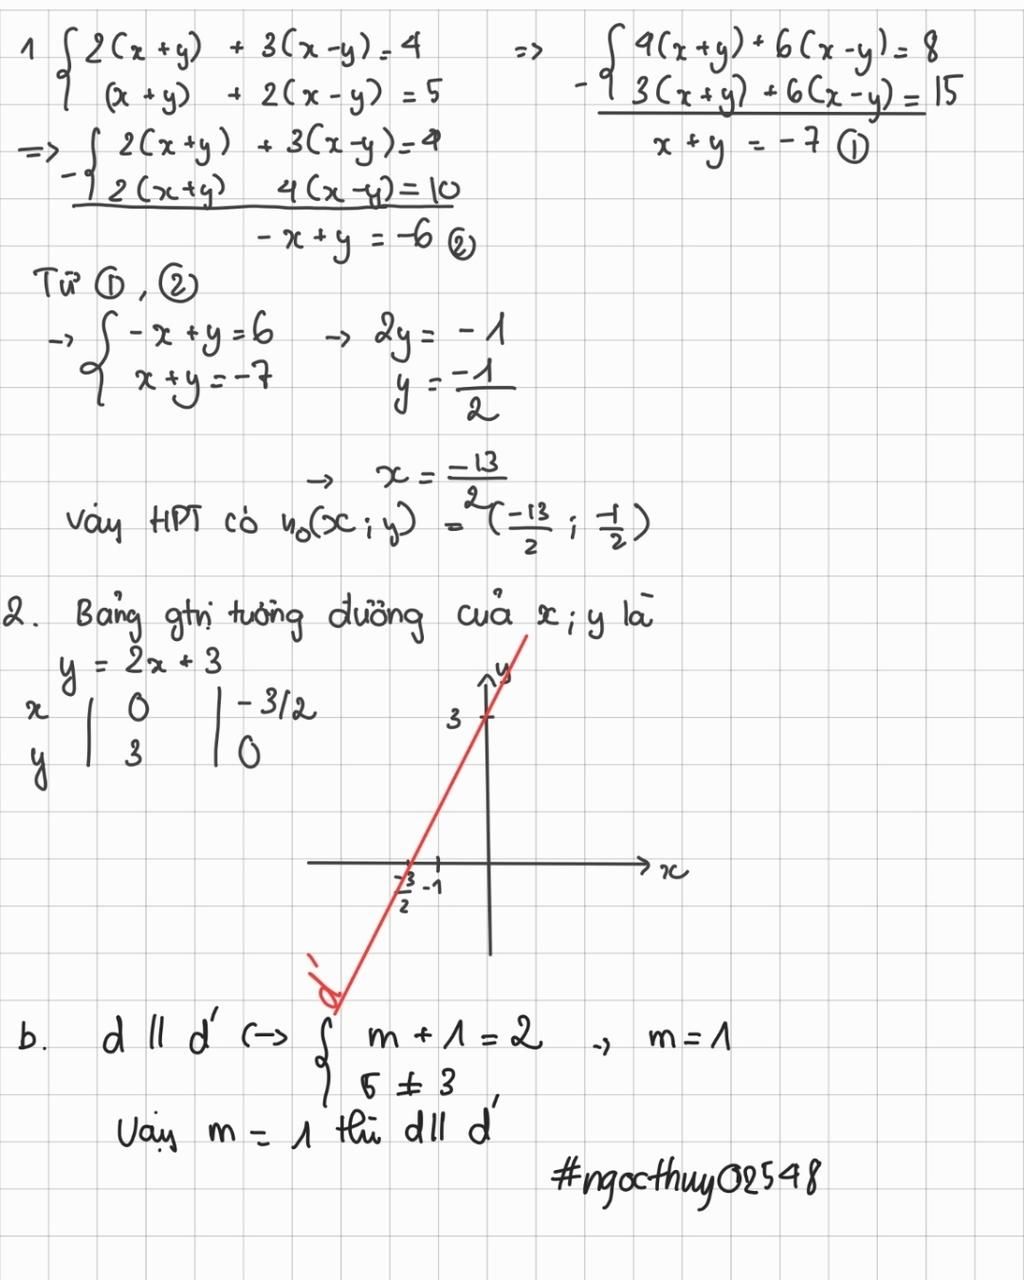 1 { 2(x+y) + 3(x-y) = 4 => { 4(x+y) + 6(x-y) = 8
(x+y) + 2(x-y) = 5 - 3(x+y) + 6(x-y) = 15
=> { 2(x+y) + 3(x-y) = 4 x + y = -7 ①
- 2(x+y) 4(x-y) = 10
-x + y = -6 ②
Từ ①, ②
-> { -x + y = 6 -> 2y = -1
x + y = -7 y = -1/2
-> x = -13/2
Vậy HPT có n₀(x; y) = (-13/2 ; -1/2)
2. Bảng gtrị tương đương của x; y là
y = 2x + 3
x | 0 | -3/2
y | 3 | 0
y
3
x
-3/2 -1
d'
b. d // d' <-> { m + 1 = 2 -> m = 1
5 ≠ 3
Vậy m = 1 thì d // d'
#ngocthuy02548